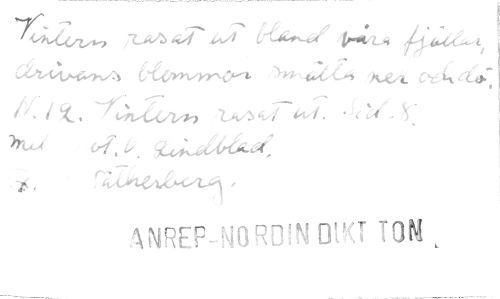 Vintern rasat ut bland våra fjällar,
drivans blommor smälta ner och dö.
N.12. Vintern rasat ut. Sid. 8.
mel ot. O. Lindblad.
Sätherberg.
ANREP-NORDIN DIKT TON